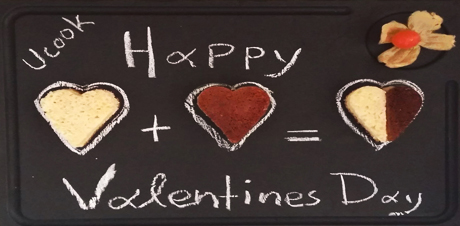 Ucook
Happy
+ =
Valentines Day